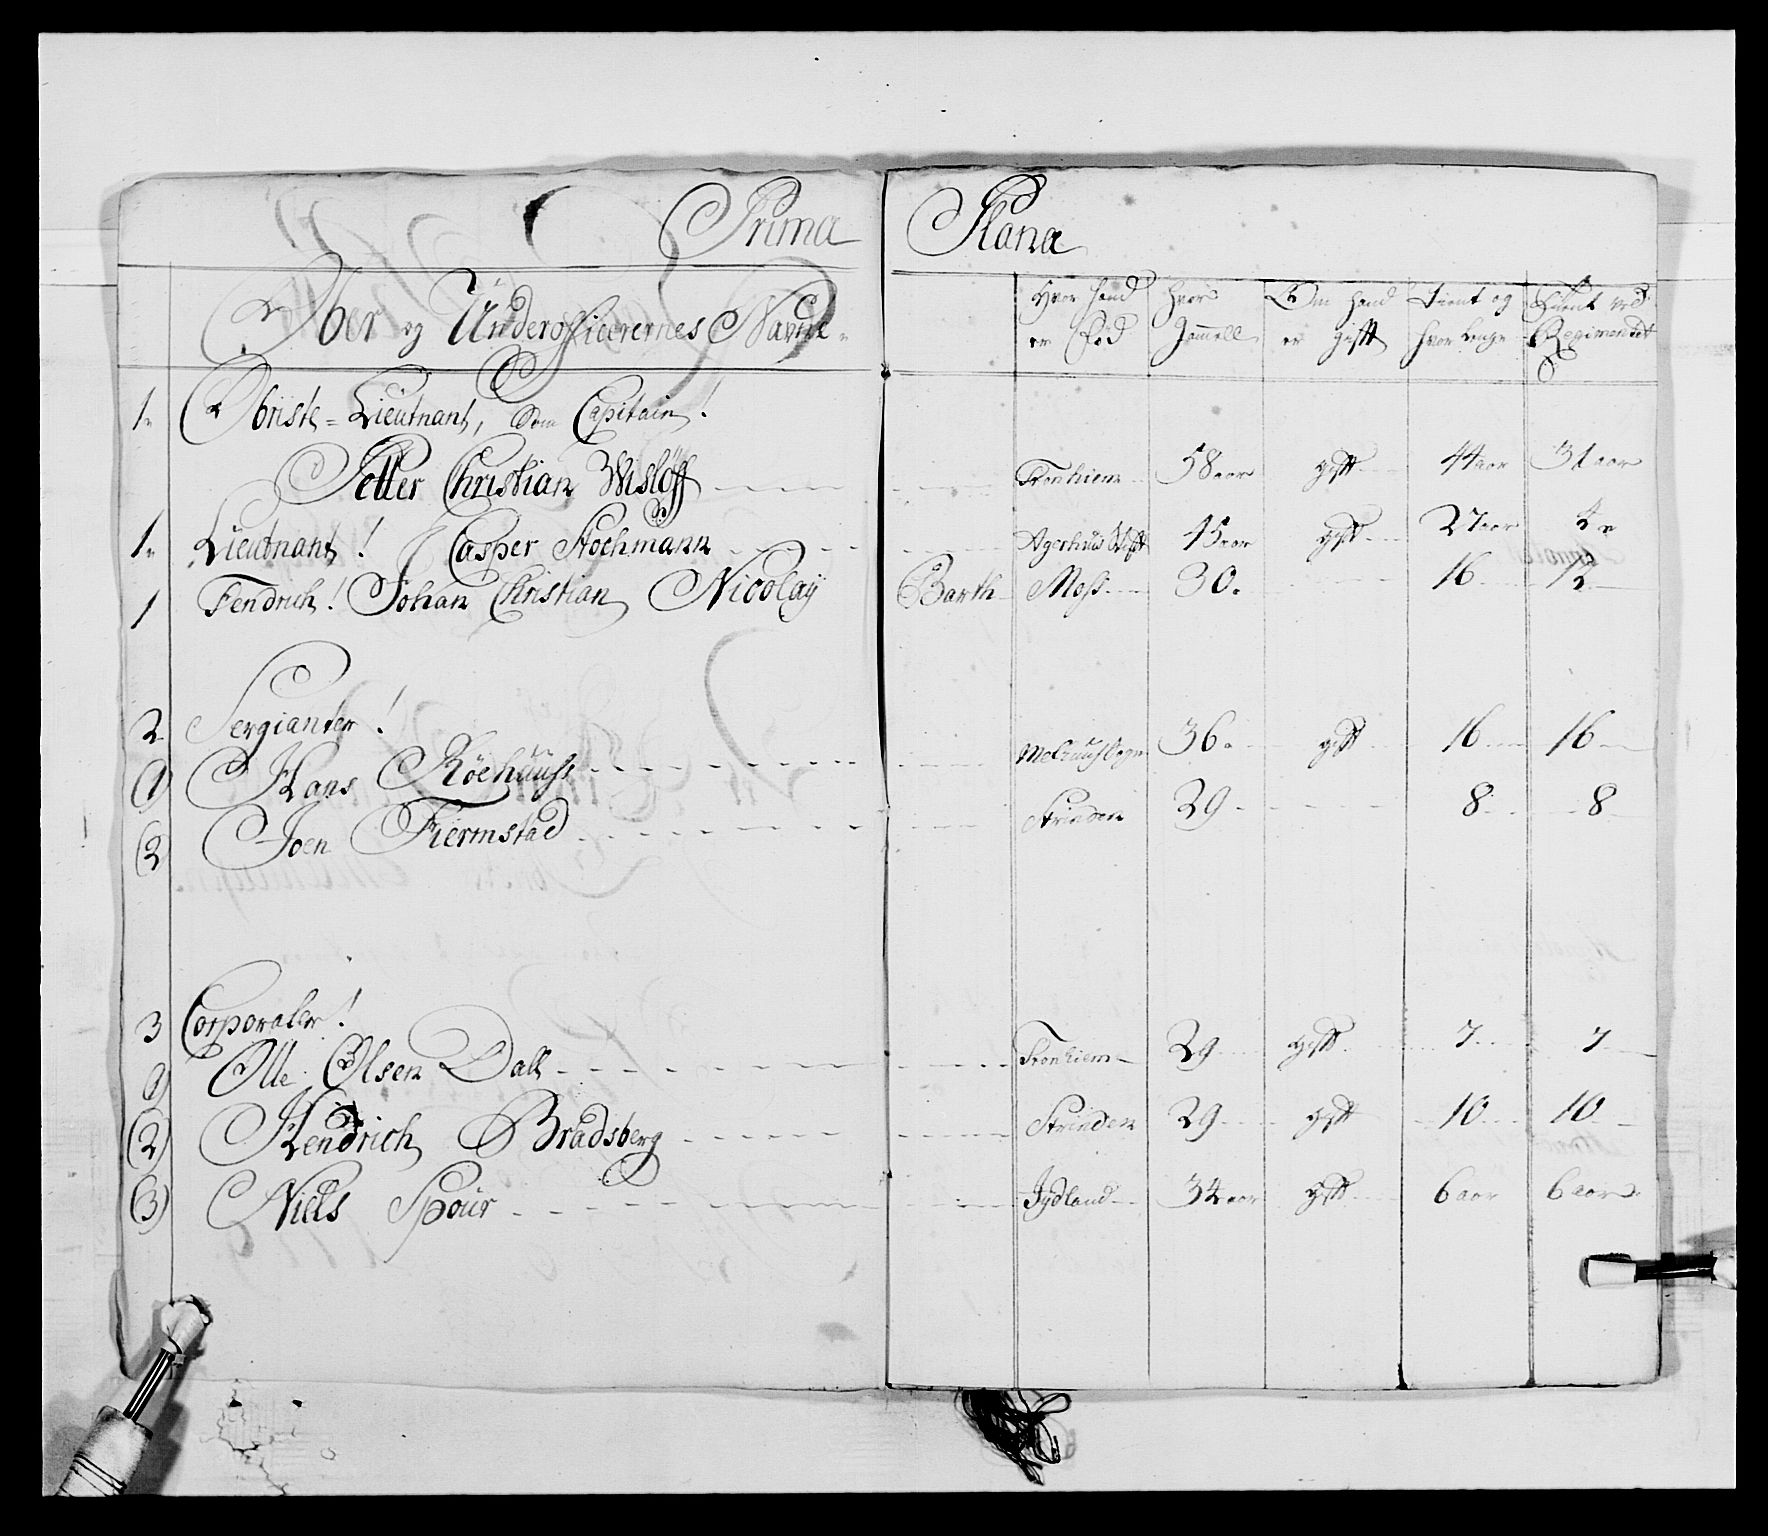 Prima Plana
Ober og Underofficerernes Navne
Hvor hand er Fød
Hvor Gammell
Om hand er gift
Tient og hvor lenge
Tient ved Regimentet
1. Obriste=Lieutnant, som Capitain!
Petter Christian Wisløff Tronhiem 58 aar gift 44 aar 31 aar
1. Lieutnant! Casper Stochmann Agerhuus Stift 45 aar gift 27 aar
1 Fendrich! Johan Christian Nicolaÿ Barth Moss 30. 16 12
2 Sergianter!
(1) Hans Røehuus Melhuus Sogn 36 gift 16 16
(2) Joen Fiermstad Strinden 29 8 8
3 Corporaler!
(1) Olle Olsen Dall Tronhiem 29 gift 7 7
(2) Hendrich Bradsberg Strinden 29 gift 10 10
(3) Niels Spour Jydland 34 aar gift 6 aar 6 aar